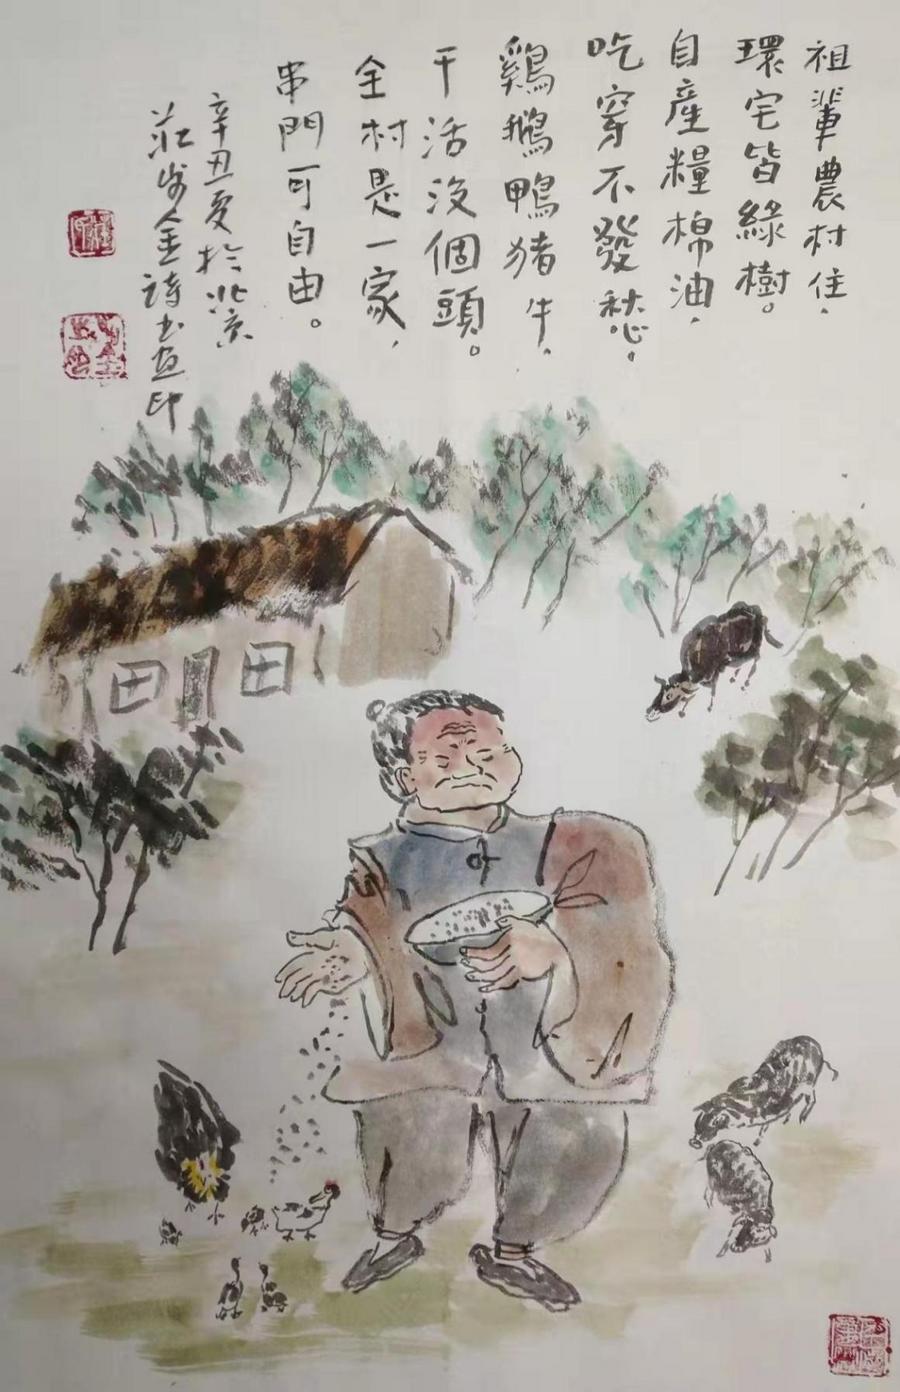 祖輩農村住，
環宅皆綠樹。
自産糧棉油，
吃穿不發愁。
鷄鵝鴨猪牛，
干活没個頭。
全村是一家，
串門可自由。
辛丑夏於北京
莊步金詩書画印